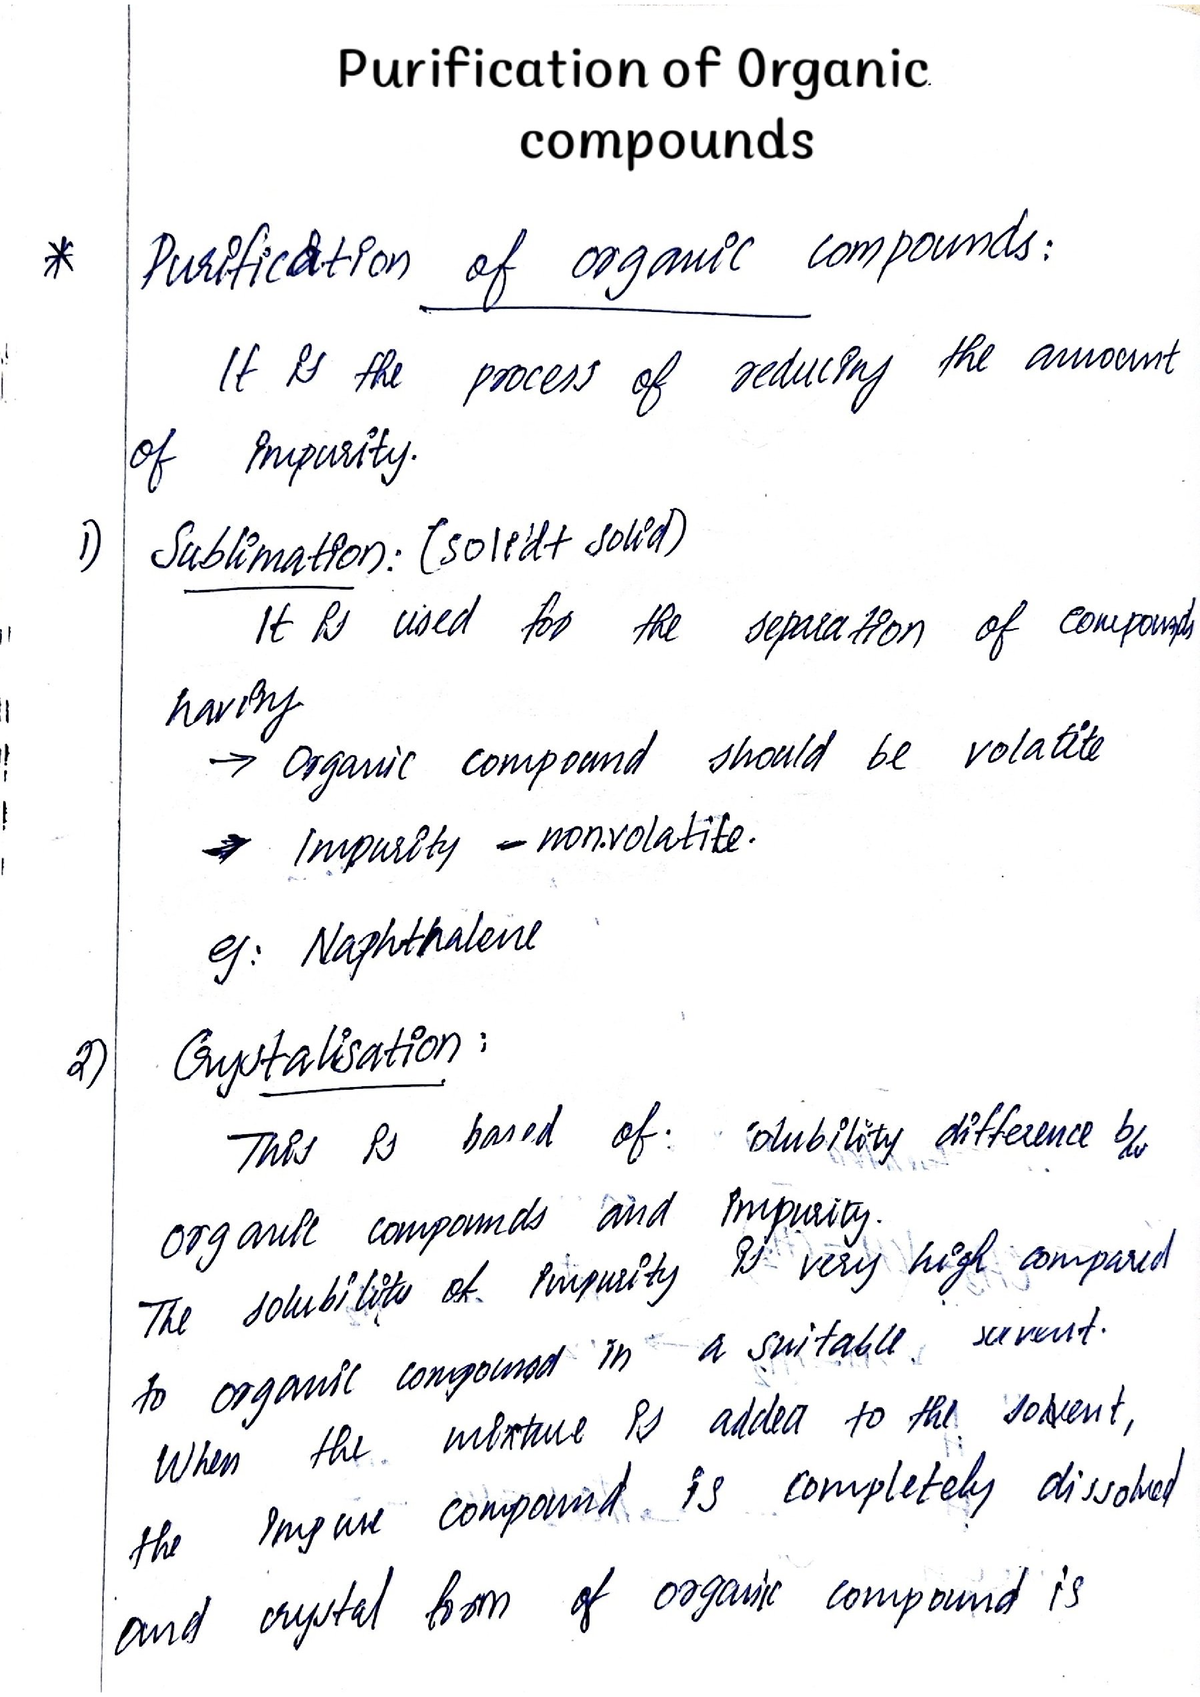 Purification of Organic
compounds
* Purification of organic compounds:
It is the process of reducing the amount
of impurity.
1) Sublimation: (solid+ solid)
It is used for the separation of compounds
having
→ Organic compound should be volatite
→ Impurity - non.volatite.
eg: Naphthalene
2) Crystalisation:
This is based of. solubility difference b/w
organic compounds and impurity.
The solubility of impurity is very high compared
to organic compound in a suitable servent.
When the mixture is added to the solvent,
the impure compound is completely dissolved
and crystal form of organic compound is